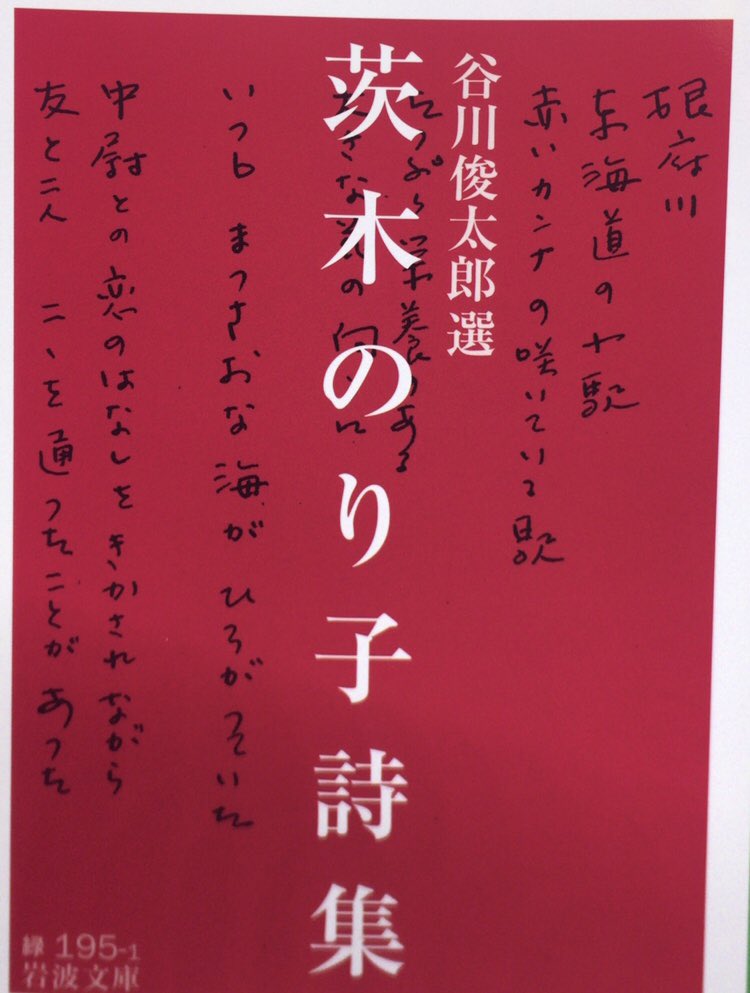 根府川
東海道の小駅
赤いカンナの咲いている駅
谷川俊太郎選
たっぷり栄養のある
大きな花の向うに
茨木のり子詩集
いつも まっさおな海がひろがっていた
中尉との恋のはなしをきかされながら
友と二人 ここを通ったことがあった
緑 195-1
岩波文庫